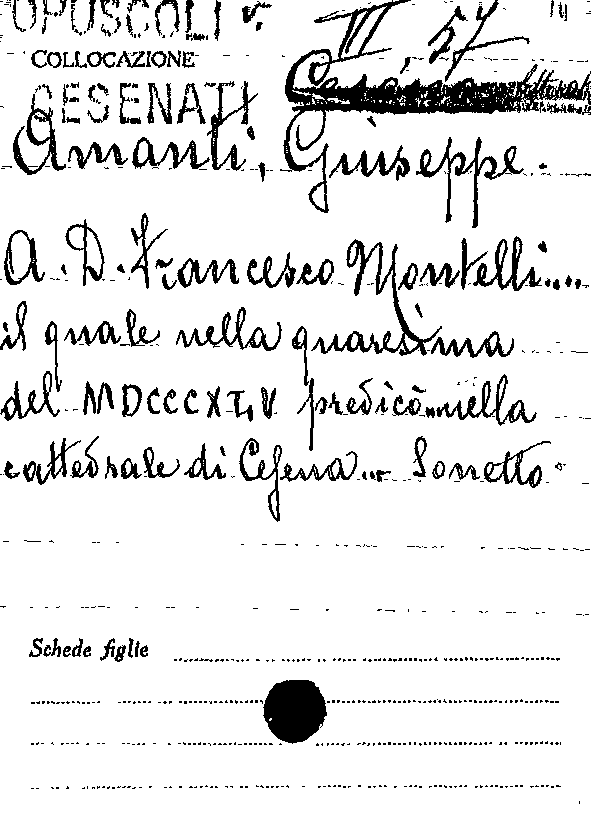 OPUSCOLI v. III, 57
COLLOCAZIONE
CESENATI
Amanti, Giuseppe.
A. D. Francesco Montelli....
il quale nella quaresima
del MDCCCXLV predicò...nella
cattedrale di Cesena... Sonetto.
Schede figlie